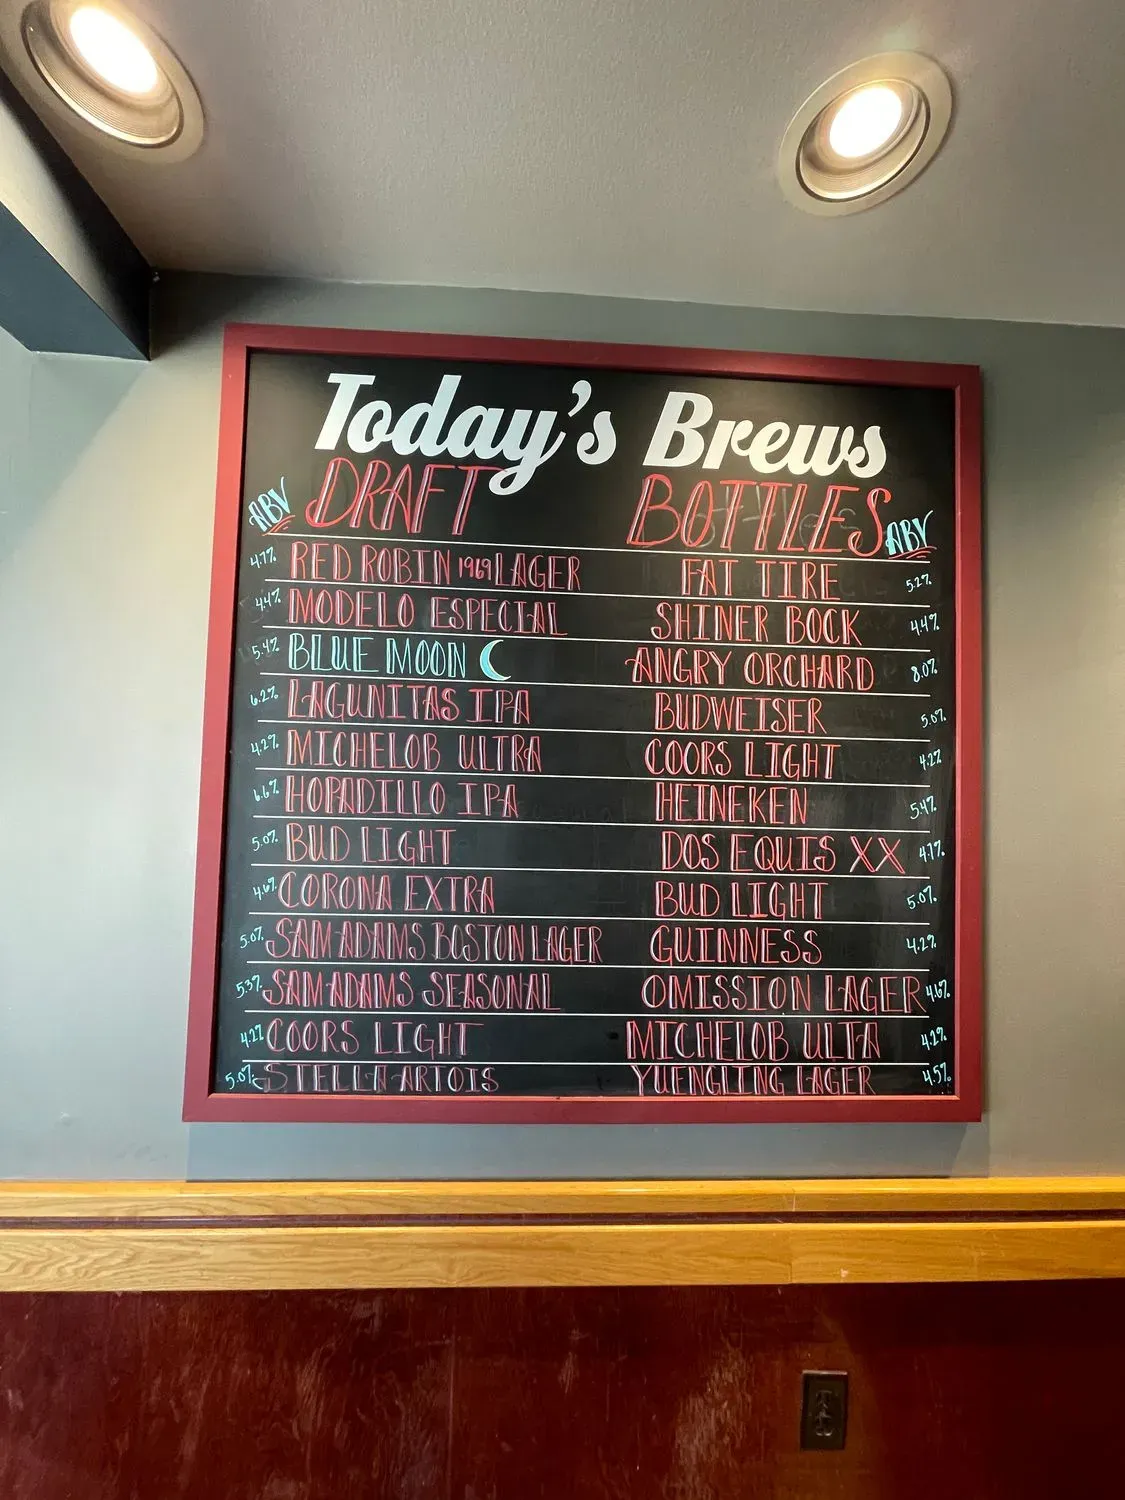 Today's Brews
ABV DRAFT BOTTLES ABV
4.7% RED ROBIN 1969 LAGER FAT TIRE 5.2%
4.4% MODELO ESPECIAL SHINER BOCK 4.4%
5.4% BLUE MOON ANGRY ORCHARD 8.0%
6.2% LAGUNITAS IPA BUDWEISER 5.0%
4.2% MICHELOB ULTRA COORS LIGHT 4.2%
6.6% HOPADILLO IPA HEINEKEN 5.4%
5.0% BUD LIGHT DOS EQUIS XX 4.7%
4.6% CORONA EXTRA BUD LIGHT 5.0%
5.0% SAM ADAMS BOSTON LAGER GUINNESS 4.2%
5.3% SAM ADAMS SEASONAL OMISSION LAGER 4.6%
4.2% COORS LIGHT MICHELOB ULTA 4.2%
5.0% STELLA ARTOIS YUENGLING LAGER 4.5%